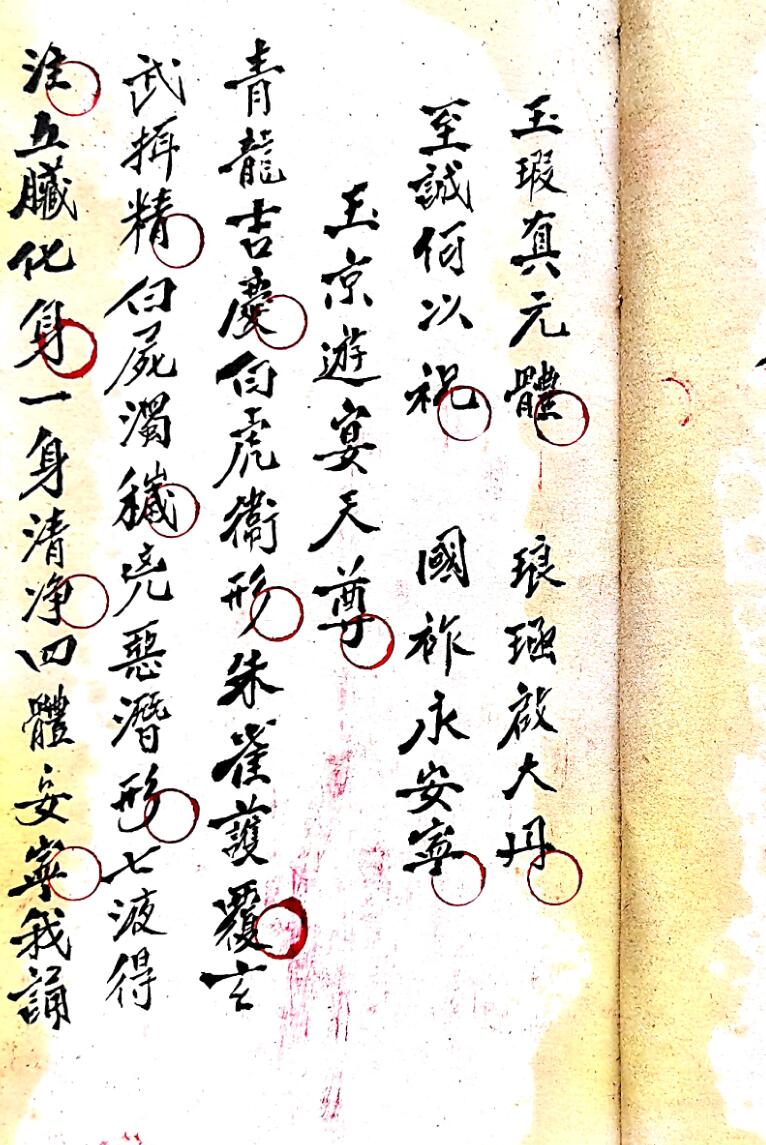 玉瑕真元體 琅函啟大丹
至誠何以祝 國祚永安寧
玉京遊宴天尊
青龍吉慶白虎衛形朱雀護覆玄
武揖精白屍濁穢兇惡潛形七液得
注五臟化身一身清净四體安寧我誦